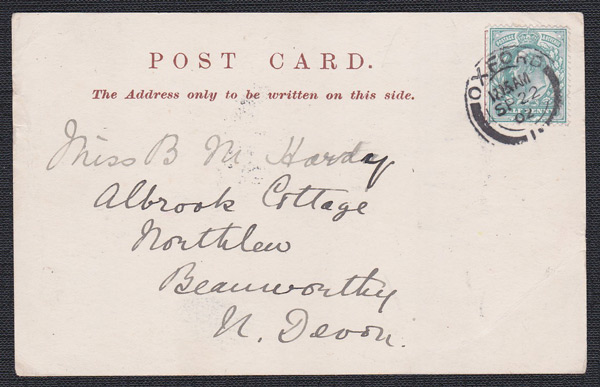 POST CARD.
The Address only to be written on this side.
OXFORD
SP 22
02
Miss B M Hardy
Albrook Cottage
Northlew
Beaworthy
N. Devon.